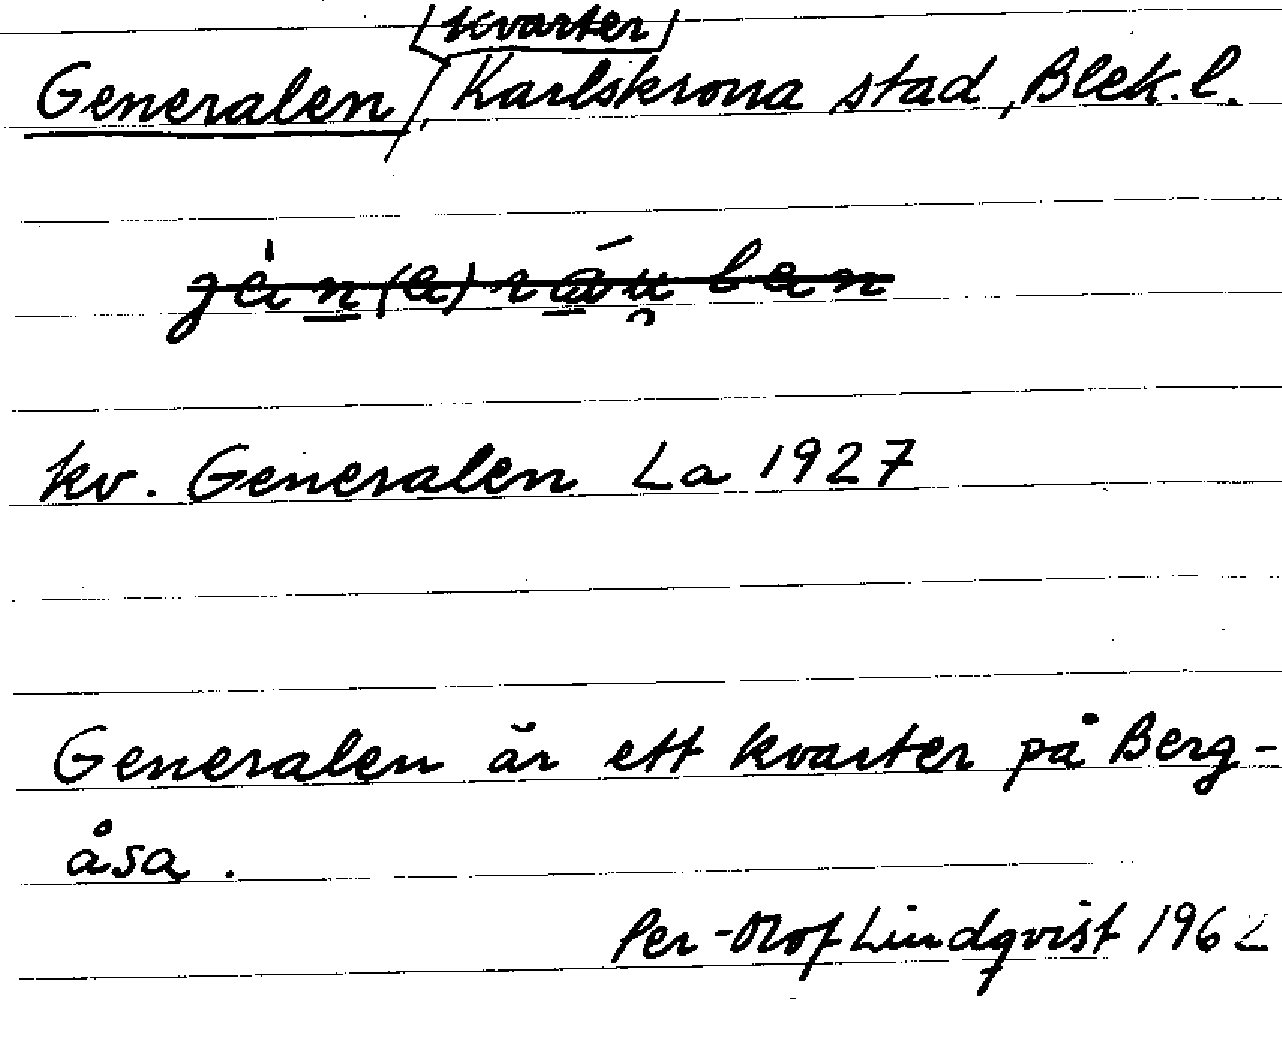 kvarter
Generalen, Karlskrona stad, Blek.l.
kv. Generalen La 1927
Generalen är ett kvarter på Berg-
åsa.
Per-Olof Lindqvist 1962